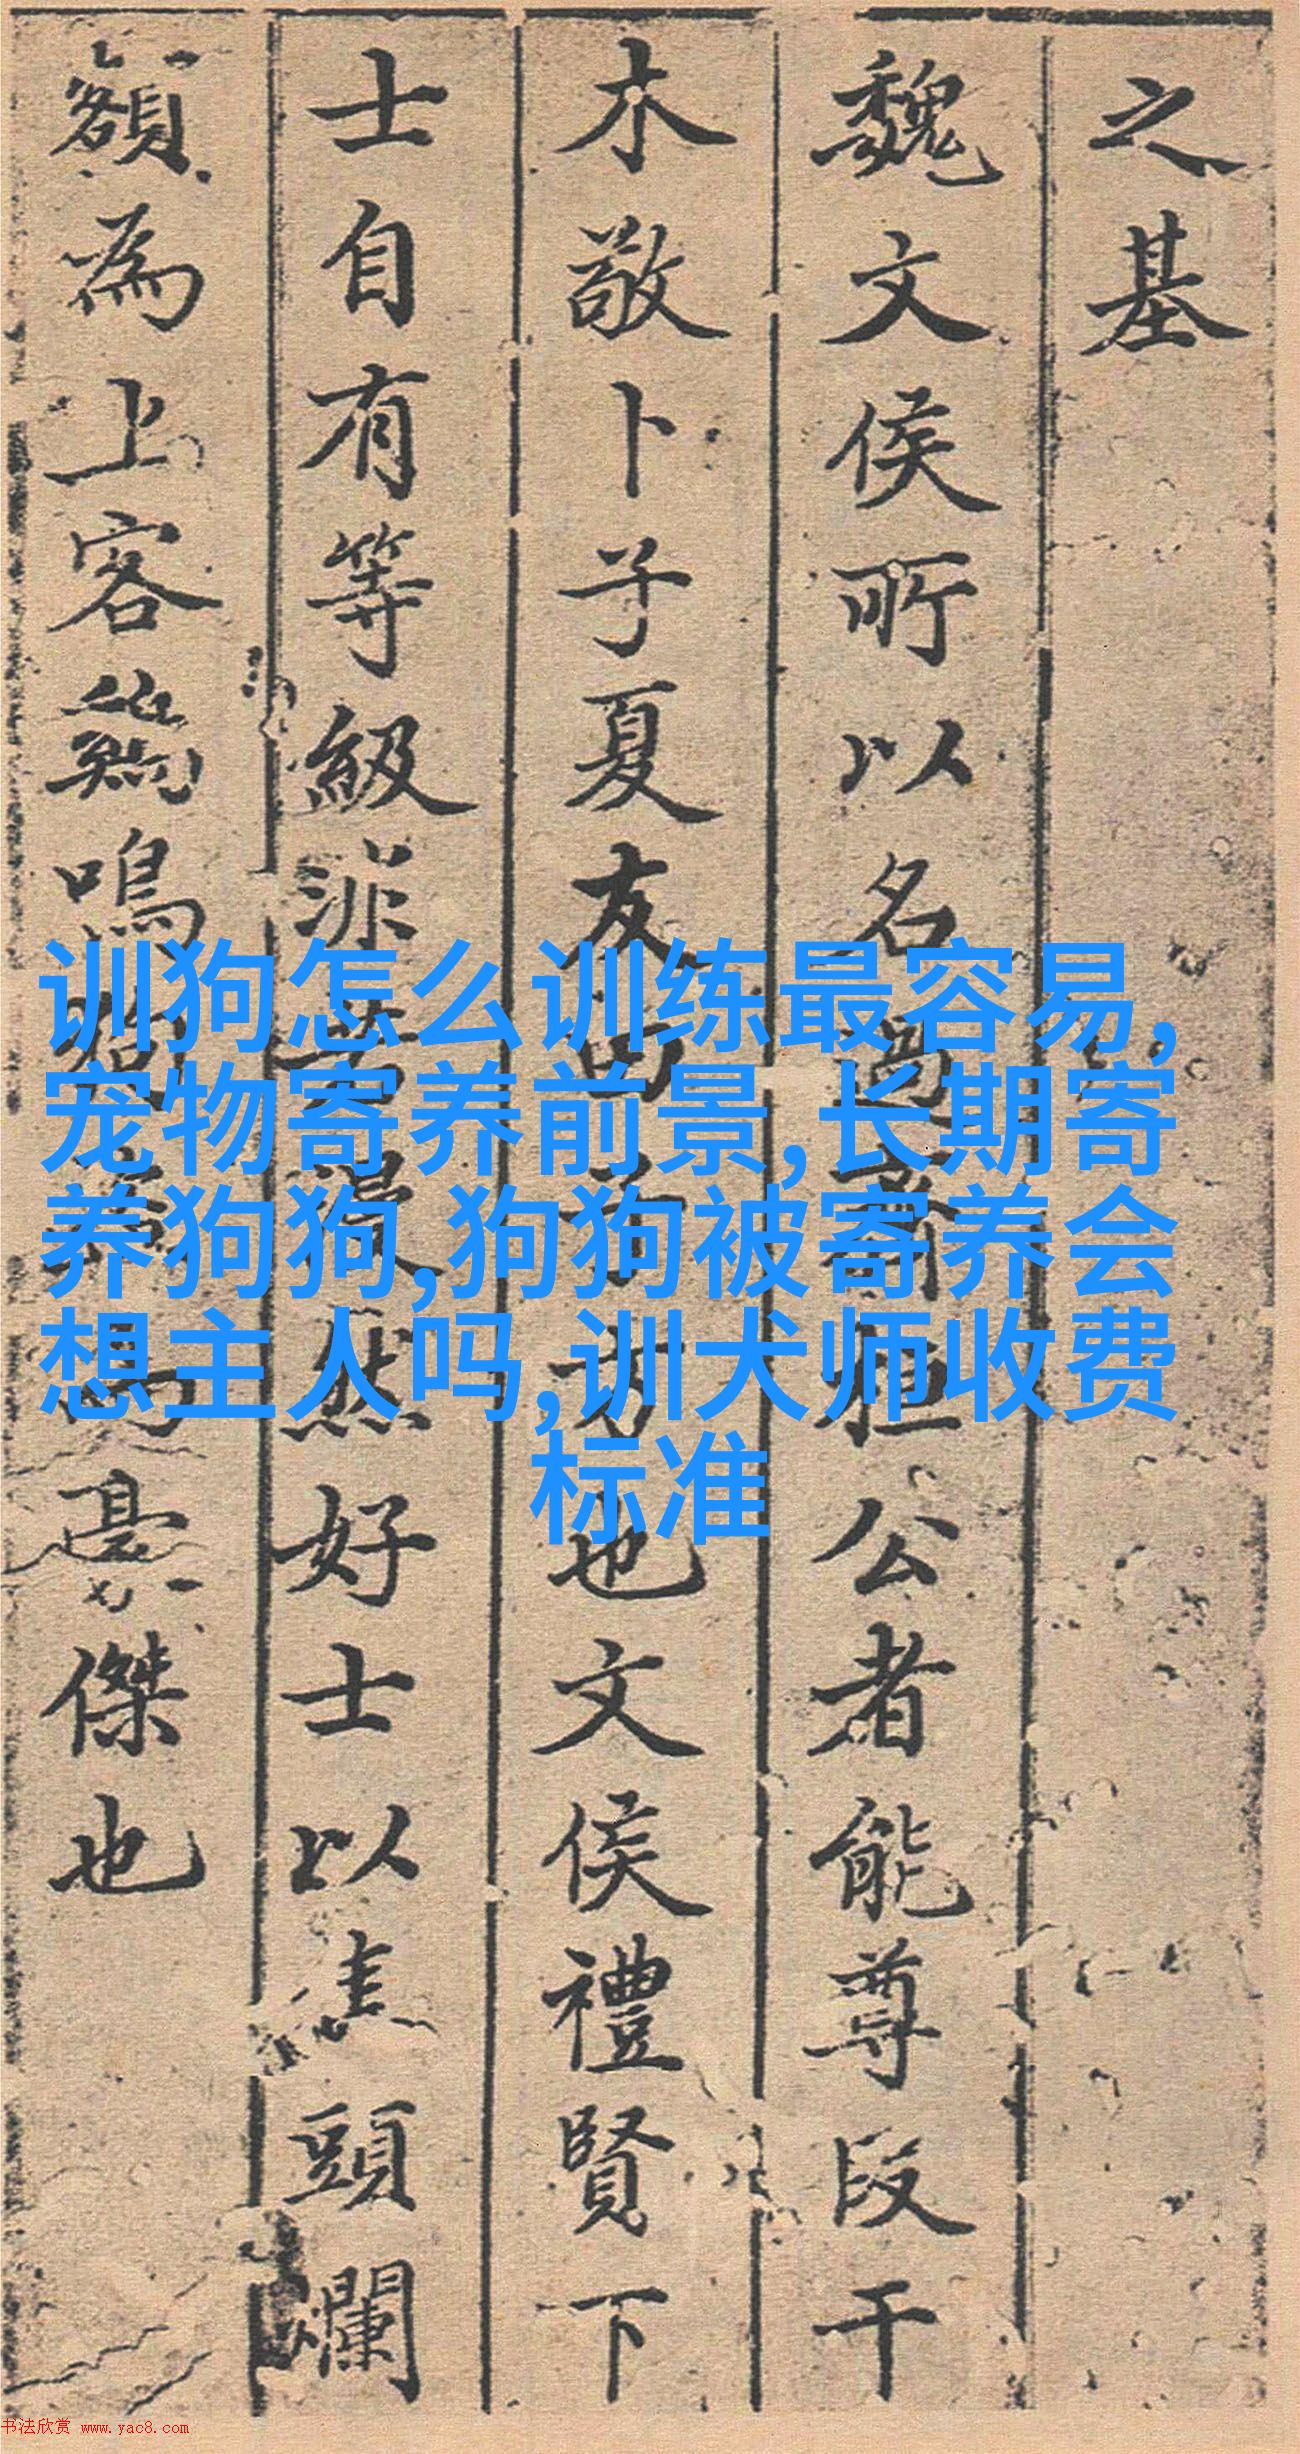 之基
魏文侯所以名過齊桓公者能尊段干
木敬卜子夏友田子方也文侯禮賢下
士自有等級非若漫然好士以焦頭爛
額為上客鷄鳴狗為豪傑也
训狗怎么训练最容易,
宠物寄养前景,长期寄
养狗狗,狗狗被寄养会
想主人吗,训犬师收费
标准
书法欣赏 www.yac8.com